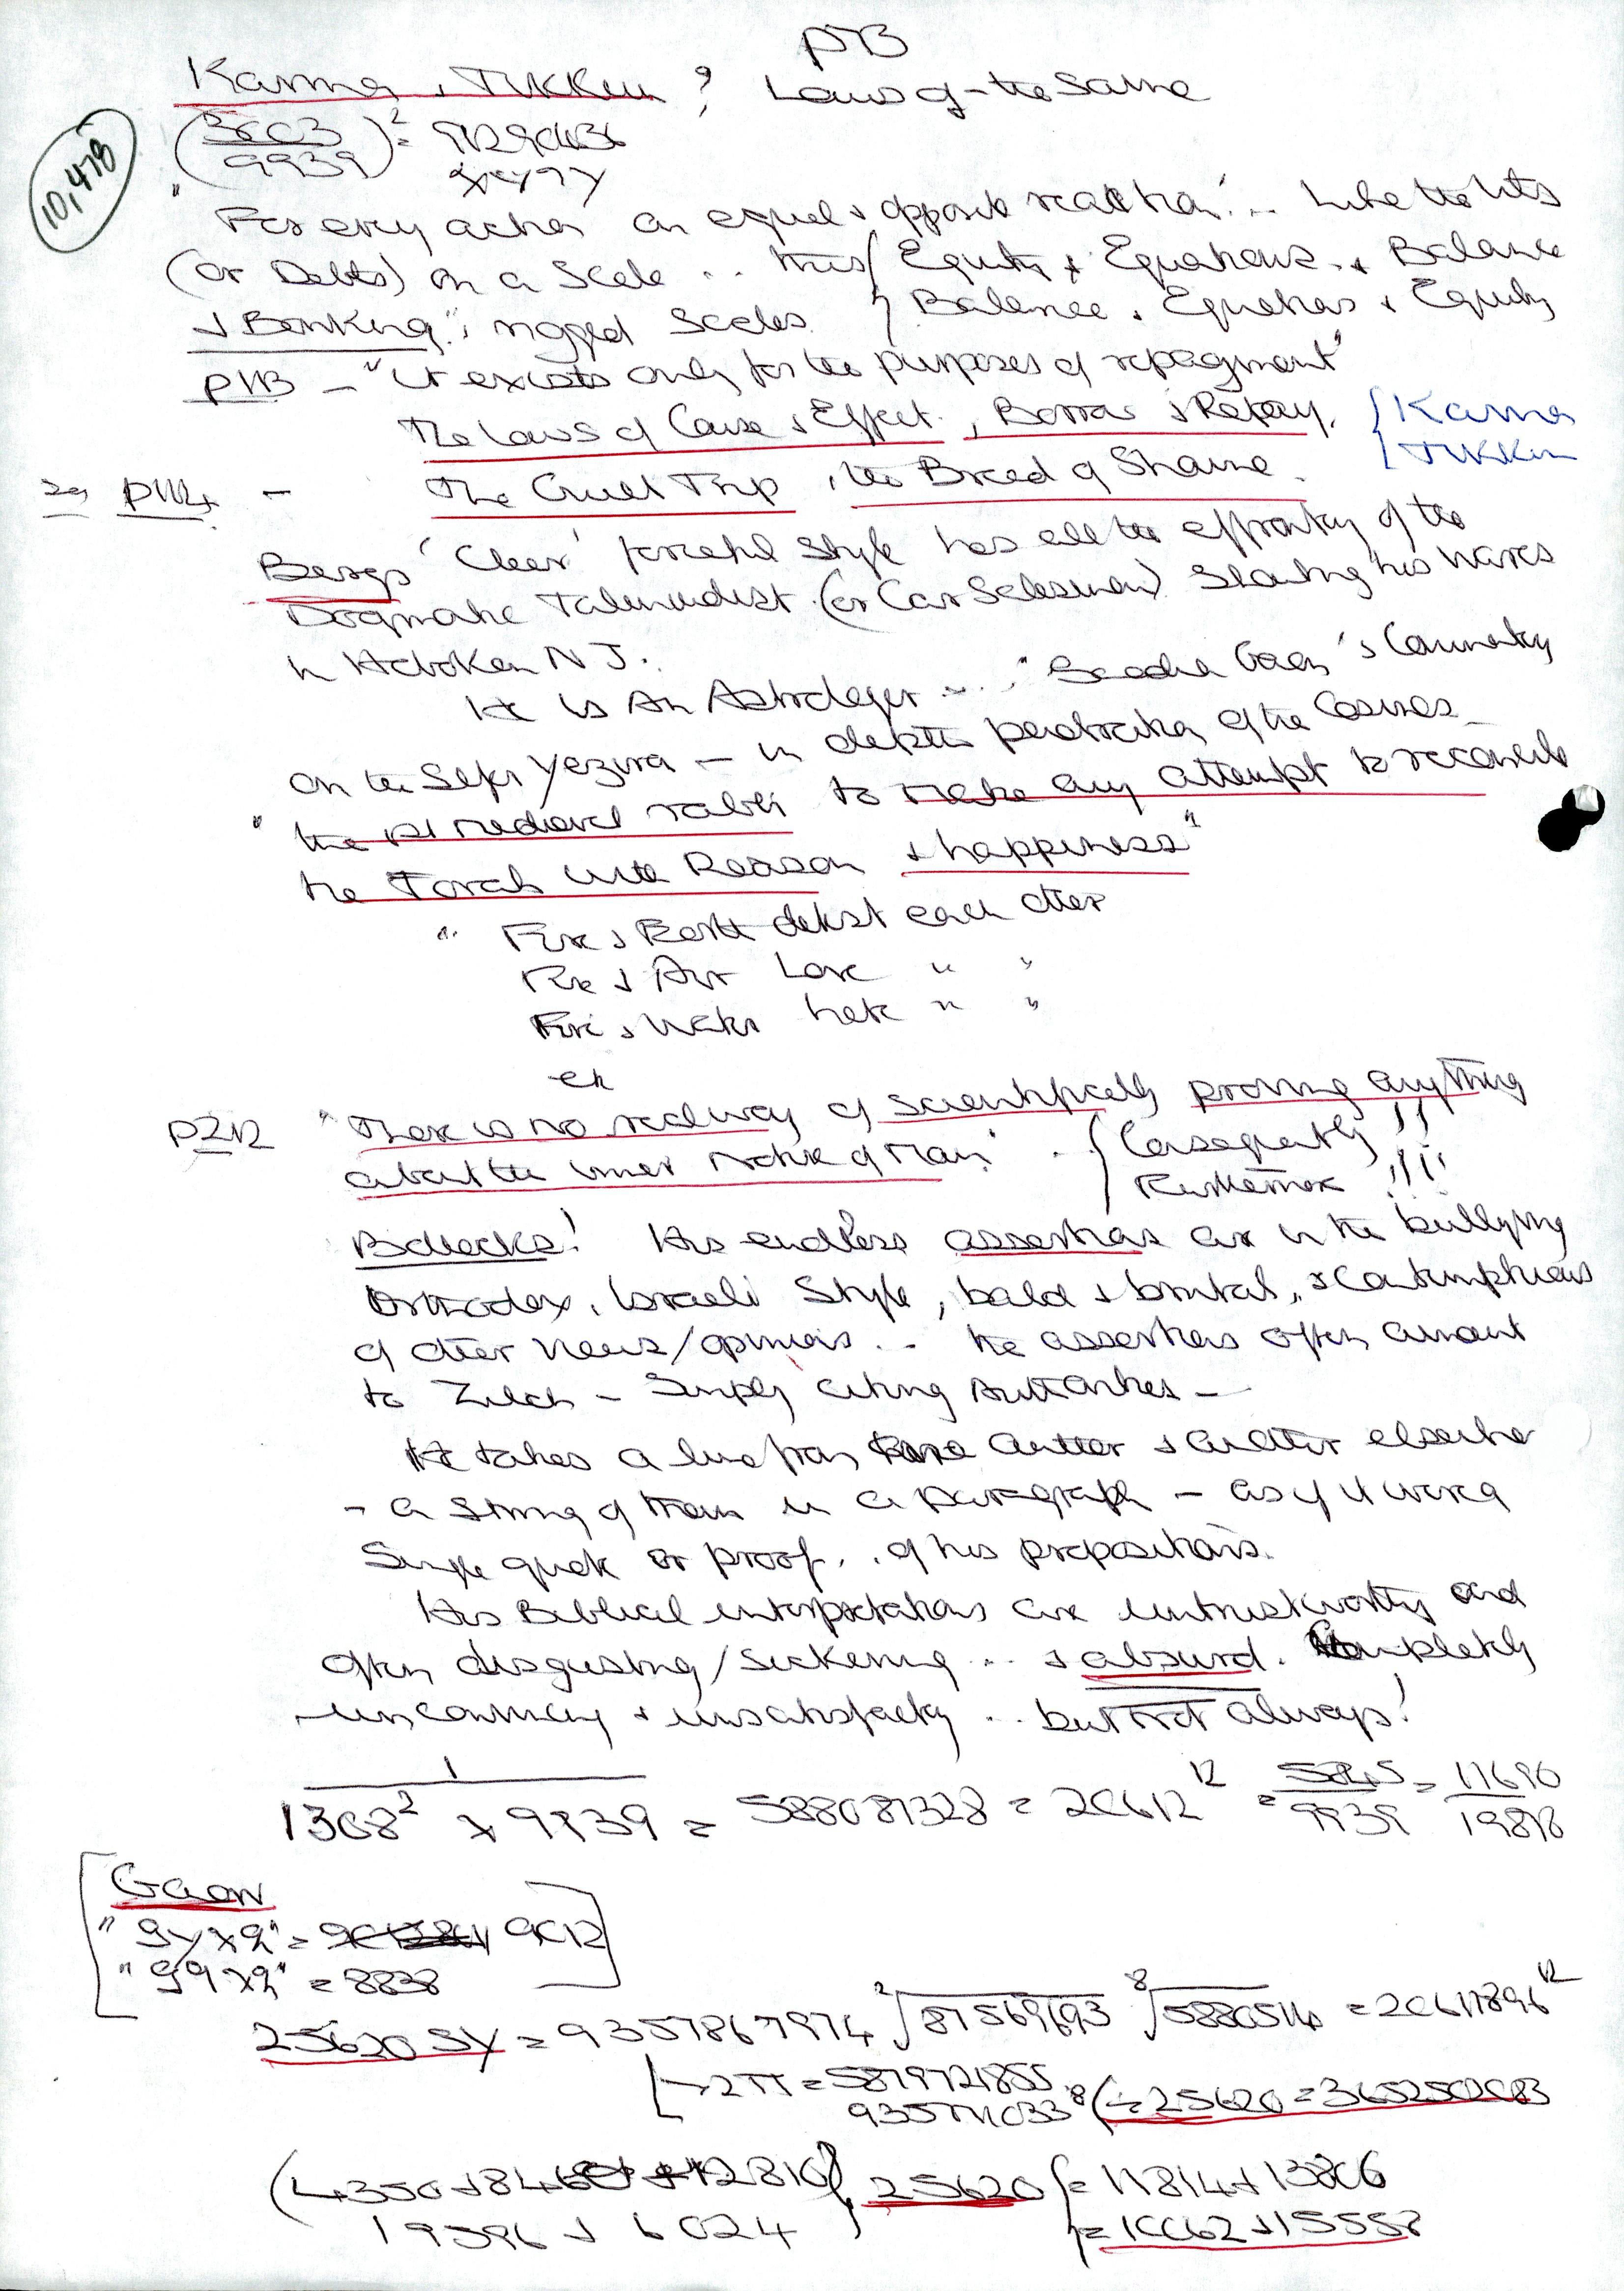 PB
Karma & TIKKun ? Laws of the same
10,478
"For every action an equal & opposite reaction"... Like the Wts
(or Debts) on a Scale .. thus { Equity & Equations & Balance
& Banking", rigged Scales { Balance & Equation & Equity
P113 - "it exists only for the purposes of repayment"
The Laws of Cause & Effect, Borrow & Repay, { Karma
{ TIKKun
eg P114 - The Guilt Trip, the Bread of Shame.
Bergs 'Clear' forceful style has all the effrontery of the
Dogmatic Talmudist (or Car Salesman) Selling his wares
in Hoboken N J.
He is An Astrologer ... "Saadia Gaon's Commentary
on the Sefer Yezira - in depth penetration of the Cosmos -
" the medieval rabbi to make any attempt to reconcile
the Torah with Reason & happiness"
" Fire & Earth detest each other
Fire & Air Love " "
Fire & Water hate " "
etc
P212 "There is no real way of scientifically proving anything
about the inner nature of Man" .. { Consequently !!
Furthermore !!!!
Bollocks! His endless assertions are in the bullying
Orthodox, Israeli Style, bald & brutal, & Contemptuous
of other views/opinions .. the assertions often amount
to Zilch - Simply citing Authorities -
He takes a line from one author & another elsewhere
- a string of them in a paragraph - as if it were a
Single quote or proof, of his propositions.
His Biblical interpretations are untrustworthy and
often disgusting/sickening .. & absurd. Completely
unconvincing & unsatisfactory .. but not always!
1
1308² x 9939 = 588081328 = 20612¹² = 5845/9939 = 11690/19878
Gaon
"9yx2" = 9012
"99x2" = 8838
25620 SY = 9357867974 ²√87569693 ⁸√5880514 = 20611896¹²
÷2π = 5879721855
(÷25620 = 365250083
25620 } = 11814 + 13806
19596 + 6024 } = 10062 + 15558